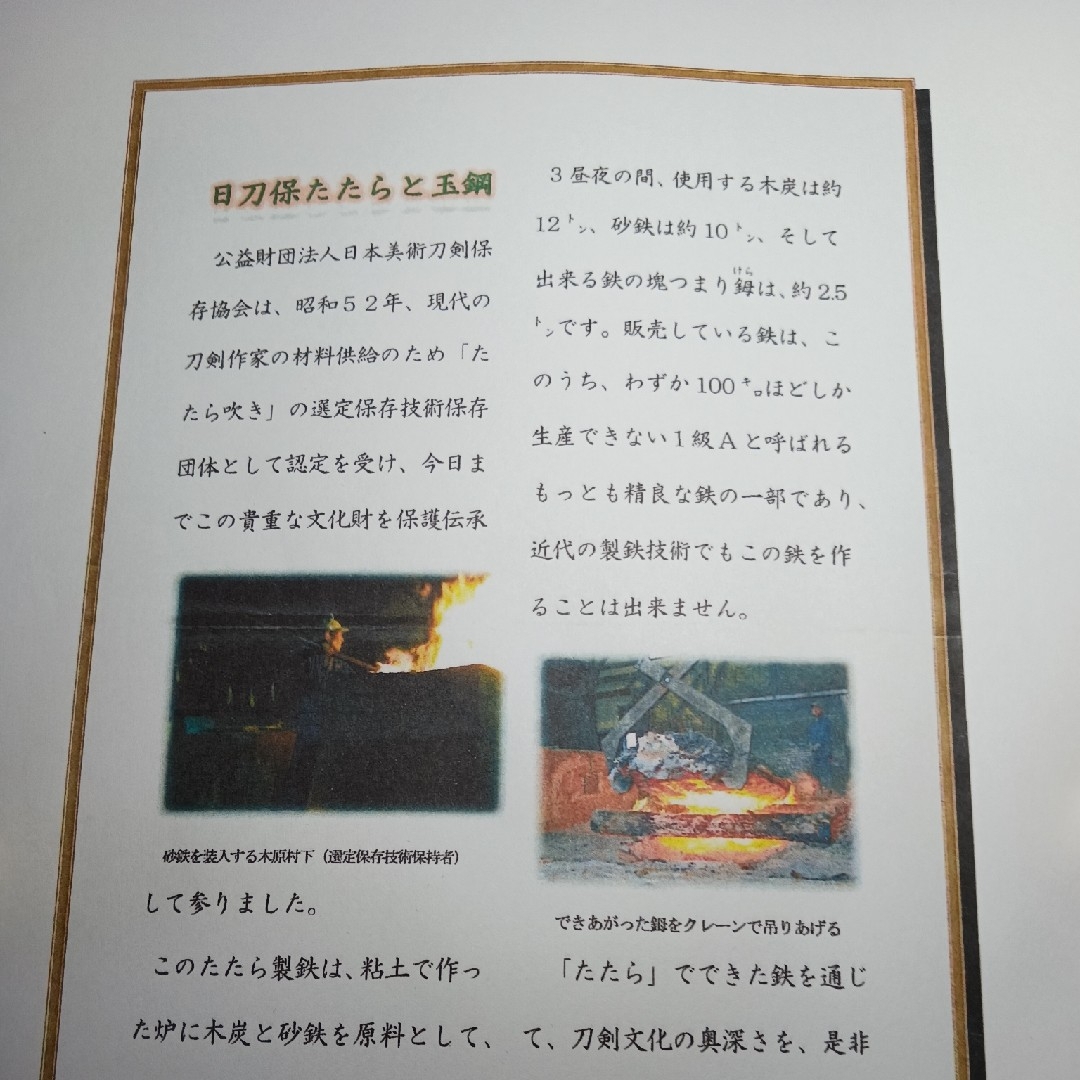 日刀保たたらと玉鋼
公益財団法人日本美術刀剣保
存協会は、昭和５２年、現代の
刀剣作家の材料供給のため「た
たら吹き」の選定保存技術保存
団体として認定を受け、今日ま
でこの貴重な文化財を保護伝承
砂鉄を装入する木原村下（選定保存技術保持者）
して参りました。
このたたら製鉄は、粘土で作っ
た炉に木炭と砂鉄を原料として、
３昼夜の間、使用する木炭は約
12㌧、砂鉄は約10㌧、そして
けら
出来る鉄の塊つまり鉧は、約2.5
㌧です。販売している鉄は、こ
のうち、わずか100㌔ほどしか
生産できない１級Ａと呼ばれる
もっとも精良な鉄の一部であり、
近代の製鉄技術でもこの鉄を作
ることは出来ません。
できあがった鉧をクレーンで吊りあげる
「たたら」でできた鉄を通じ
て、刀剣文化の奥深さを、是非